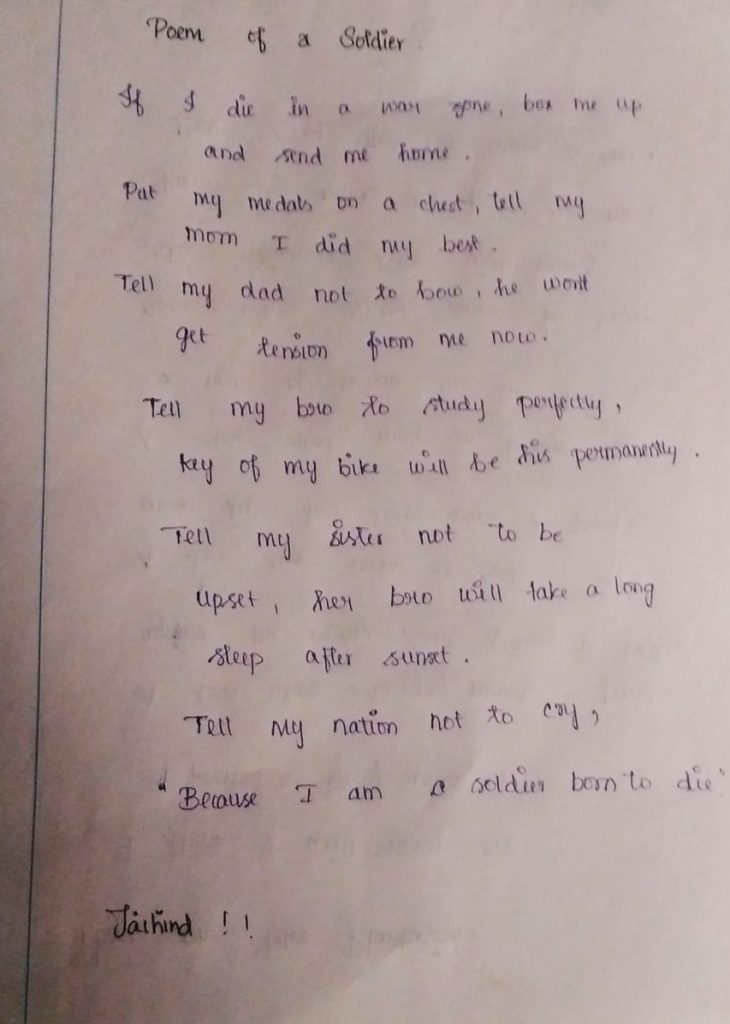 Poem of a Soldier
If I die in a war zone, box me up
and send me home.
Put my medals on a chest, tell my
mom I did my best.
Tell my dad not to bow, he wont
get tension from me now.
Tell my bro to study perfectly,
key of my bike will be his permanently.
Tell my sister not to be
upset, her bro will take a long
sleep after sunset.
Tell my nation not to cry,
"Because I am a soldier born to die"
Jaihind !!